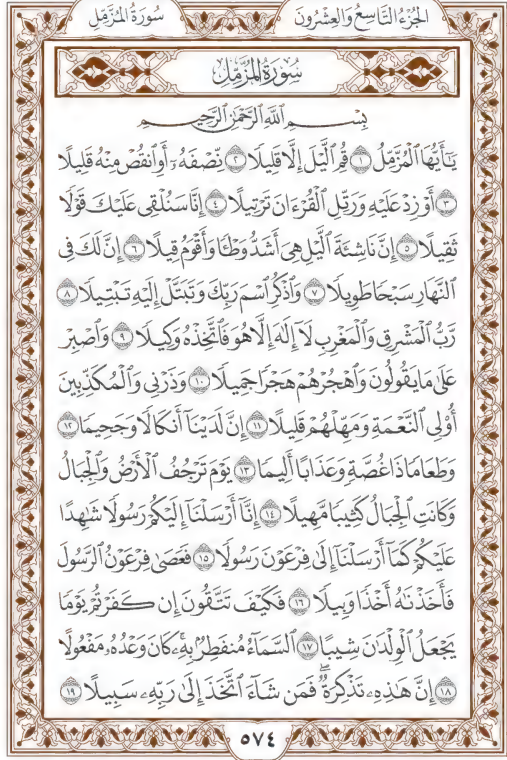 سُورَةُ المُزَّمِّلِ الجُزْءُ التَّاسِعُ وَالعِشْرُونَ
سُورَةُ المُزَّمِّلِ
بِسْمِ ٱللَّهِ ٱلرَّحْمَٰنِ ٱلرَّحِيمِ
يَٰٓأَيُّهَا ٱلْمُزَّمِّلُ ١ قُمِ ٱلَّيْلَ إِلَّا قَلِيلًا ٢ نِّصْفَهُۥٓ أَوِ ٱنقُصْ مِنْهُ قَلِيلًا
٣ أَوْ زِدْ عَلَيْهِ وَرَتِّلِ ٱلْقُرْءَانَ تَرْتِيلًا ٤ إِنَّا سَنُلْقِى عَلَيْكَ قَوْلًا
ثَقِيلًا ٥ إِنَّ نَاشِئَةَ ٱلَّيْلِ هِىَ أَشَدُّ وَطْـًٔا وَأَقْوَمُ قِيلًا ٦ إِنَّ لَكَ فِى
ٱلنَّهَارِ سَبْحًا طَوِيلًا ٧ وَٱذْكُرِ ٱسْمَ رَبِّكَ وَتَبَتَّلْ إِلَيْهِ تَبْتِيلًا ٨
رَّبُّ ٱلْمَشْرِقِ وَٱلْمَغْرِبِ لَآ إِلَٰهَ إِلَّا هُوَ فَٱتَّخِذْهُ وَكِيلًا ٩ وَٱصْبِرْ
عَلَىٰ مَا يَقُولُونَ وَٱهْجُرْهُمْ هَجْرًا جَمِيلًا ١٠ وَذَرْنِى وَٱلْمُكَذِّبِينَ
أُو۟لِى ٱلنَّعْمَةِ وَمَهِّلْهُمْ قَلِيلًا ١١ إِنَّ لَدَيْنَآ أَنكَالًا وَجَحِيمًا ١٢
وَطَعَامًا ذَا غُصَّةٍ وَعَذَابًا أَلِيمًا ١٣ يَوْمَ تَرْجُفُ ٱلْأَرْضُ وَٱلْجِبَالُ
وَكَانَتِ ٱلْجِبَالُ كَثِيبًا مَّهِيلًا ١٤ إِنَّآ أَرْسَلْنَآ إِلَيْكُمْ رَسُولًا شَٰهِدًا
عَلَيْكُمْ كَمَآ أَرْسَلْنَآ إِلَىٰ فِرْعَوْنَ رَسُولًا ١٥ فَعَصَىٰ فِرْعَوْنُ ٱلرَّسُولَ
فَأَخَذْنَٰهُ أَخْذًا وَبِيلًا ١٦ فَكَيْفَ تَتَّقُونَ إِن كَفَرْتُمْ يَوْمًا
يَجْعَلُ ٱلْوِلْدَٰنَ شِيبًا ١٧ ٱلسَّمَآءُ مُنفَطِرٌۢ بِهِۦ كَانَ وَعْدُهُۥ مَفْعُولًا
١٨ إِنَّ هَٰذِهِۦ تَذْكِرَةٌ ۖ فَمَن شَآءَ ٱتَّخَذَ إِلَىٰ رَبِّهِۦ سَبِيلًا ١٩
٥٧٤